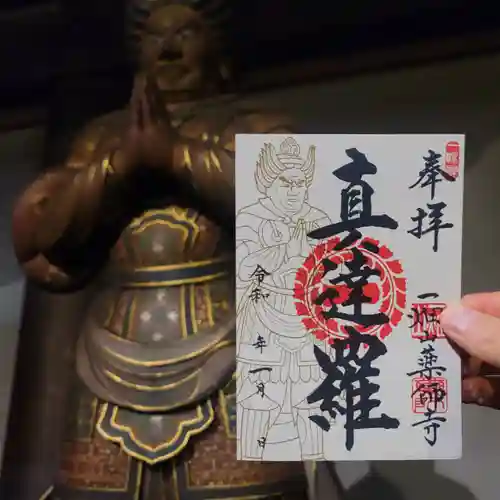 奉拝
一畑山薬師寺
真達羅
令和 年一月 日